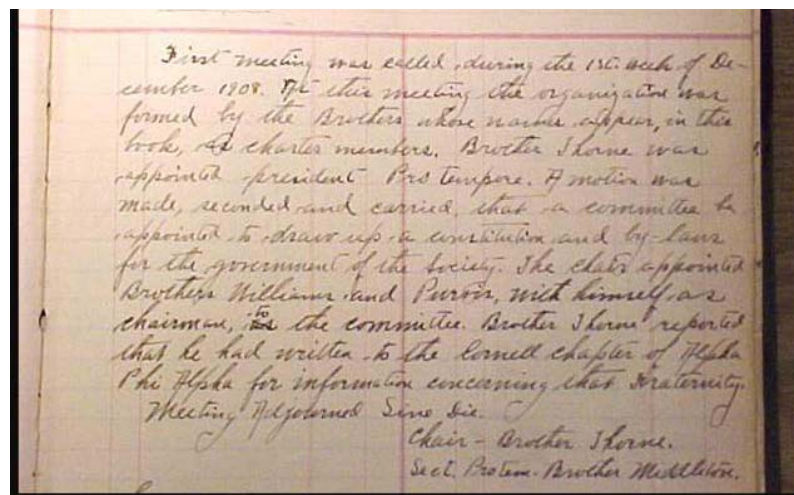 First meeting was called during the 1st. week of De-
cember 1908. At this meeting the organization was
formed by the Brothers whose names appear, in this
book, as charter members. Brother Thorne was
appointed president Pro tempore. A motion was
made, seconded and carried, that a committee be
appointed to draw up a constitution and by-laws
for the government of the Society. The chair appointed
Brothers Williams and Purvis, with himself as
chairman, to the committee. Brother Thorne reported
that he had written to the Cornell chapter of Alpha
Phi Alpha for information concerning that Fraternity.
Meeting Adjourned Sine Die.
Chair - Brother Thorne.
Sect. Protem. Brother Middleton.